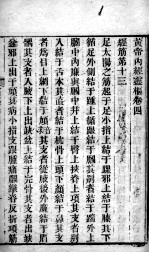 黃帝內經靈樞卷四
經筋第十三
足太陽之筋起于足小指上結于踝邪上結于膝其下
循足外側結于踵上循跟結于膕其別者結于踹外上
膕中內廉與膕中并上結于臀上挾脊上項其支者別
入結于舌本其直者結于枕骨上頭下顏結于鼻其支
者為目上網下結于頄其支者從腋後外廉結于肩
髃其支者入腋下上出缺盆上結于完骨其支者出缺
盆邪上出于頄其病小指支跟腫痛膕攣脊反折項筋